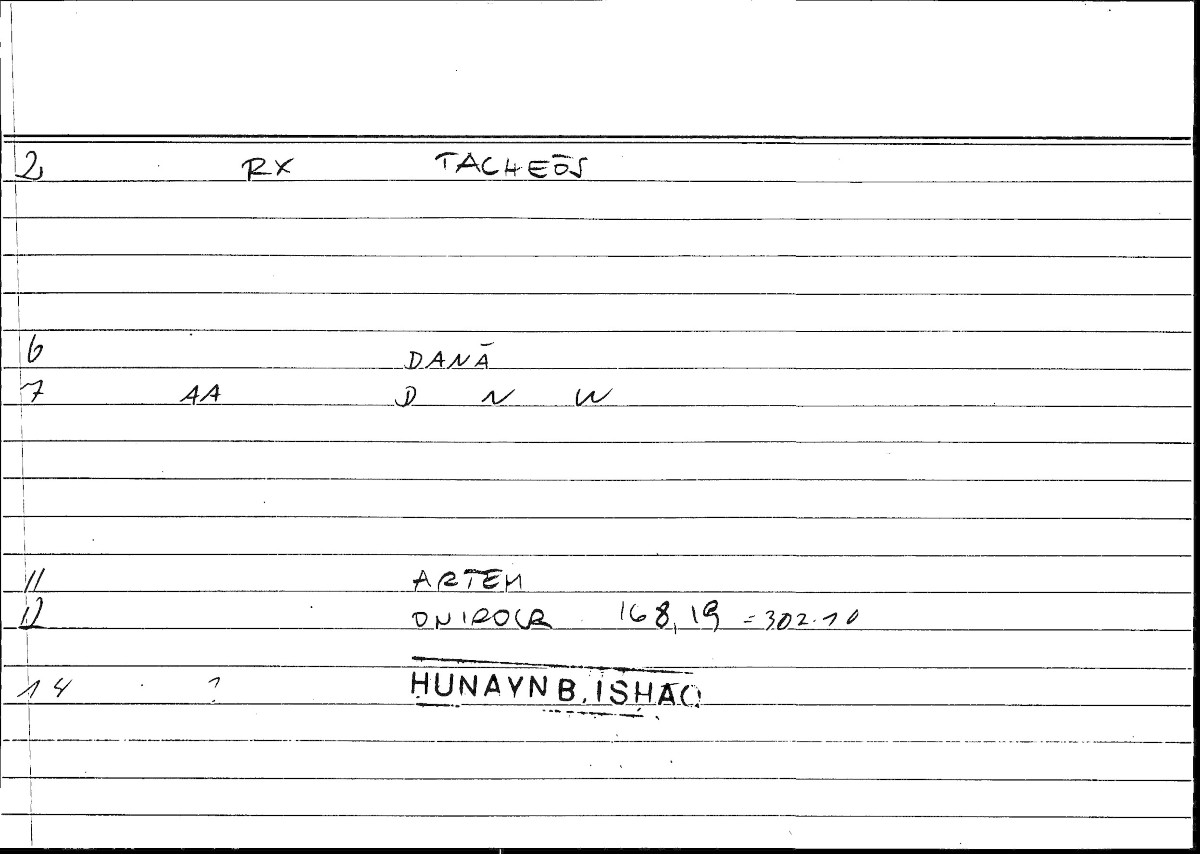 2 RX TACHEŌS
6 DANĀ
7 AA D N W
11 ARTEM
12 ONIROCR 168,19 = 302.10
14 ? HUNAYN B. ISHAQ